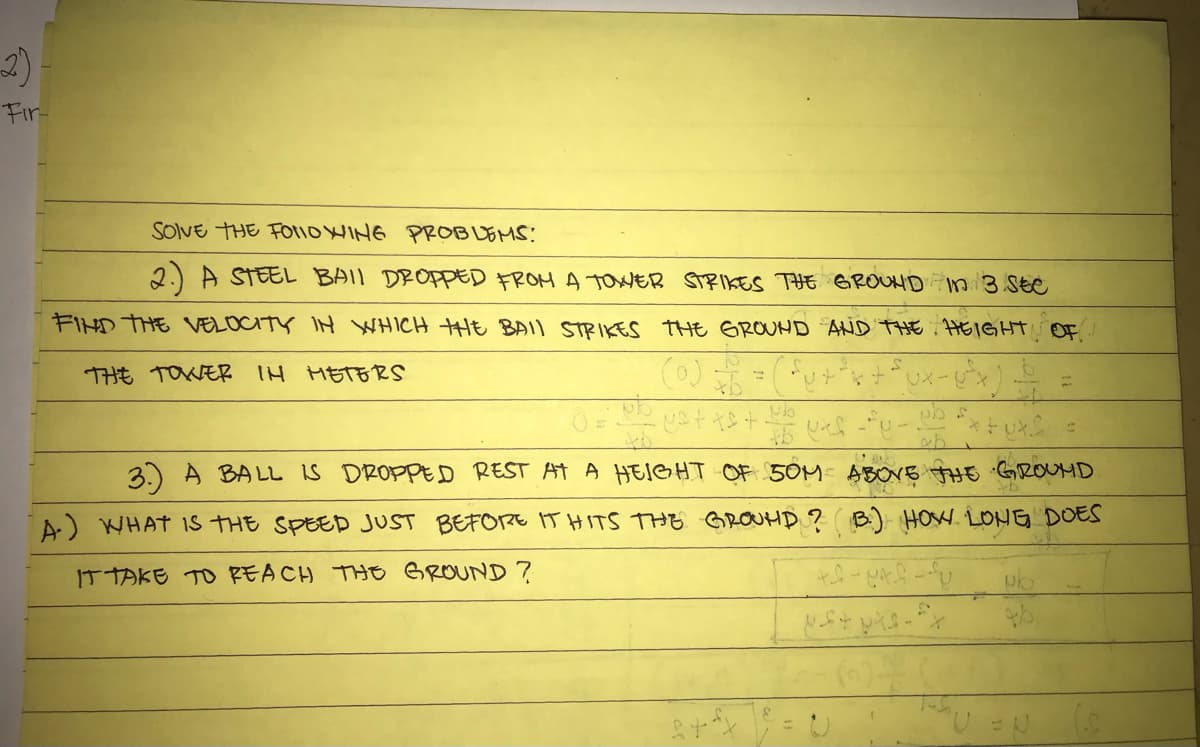 2)
Fin
SOLVE THE FOLLOWING PROBLEMS:
2.) A STEEL BALL DROPPED FROM A TOWER STRIKES THE GROUND in 3 SEC
FIND THE VELOCITY IN WHICH THE BALL STRIKES THE GROUND AND THE HEIGHT OF
THE TOWER IN METERS
3.) A BALL IS DROPPED REST AT A HEIGHT OF 50M ABOVE THE GROUND
A.) WHAT IS THE SPEED JUST BEFORE IT HITS THE GROUND? B.) HOW LONG DOES
IT TAKE TO REACH THE GROUND?